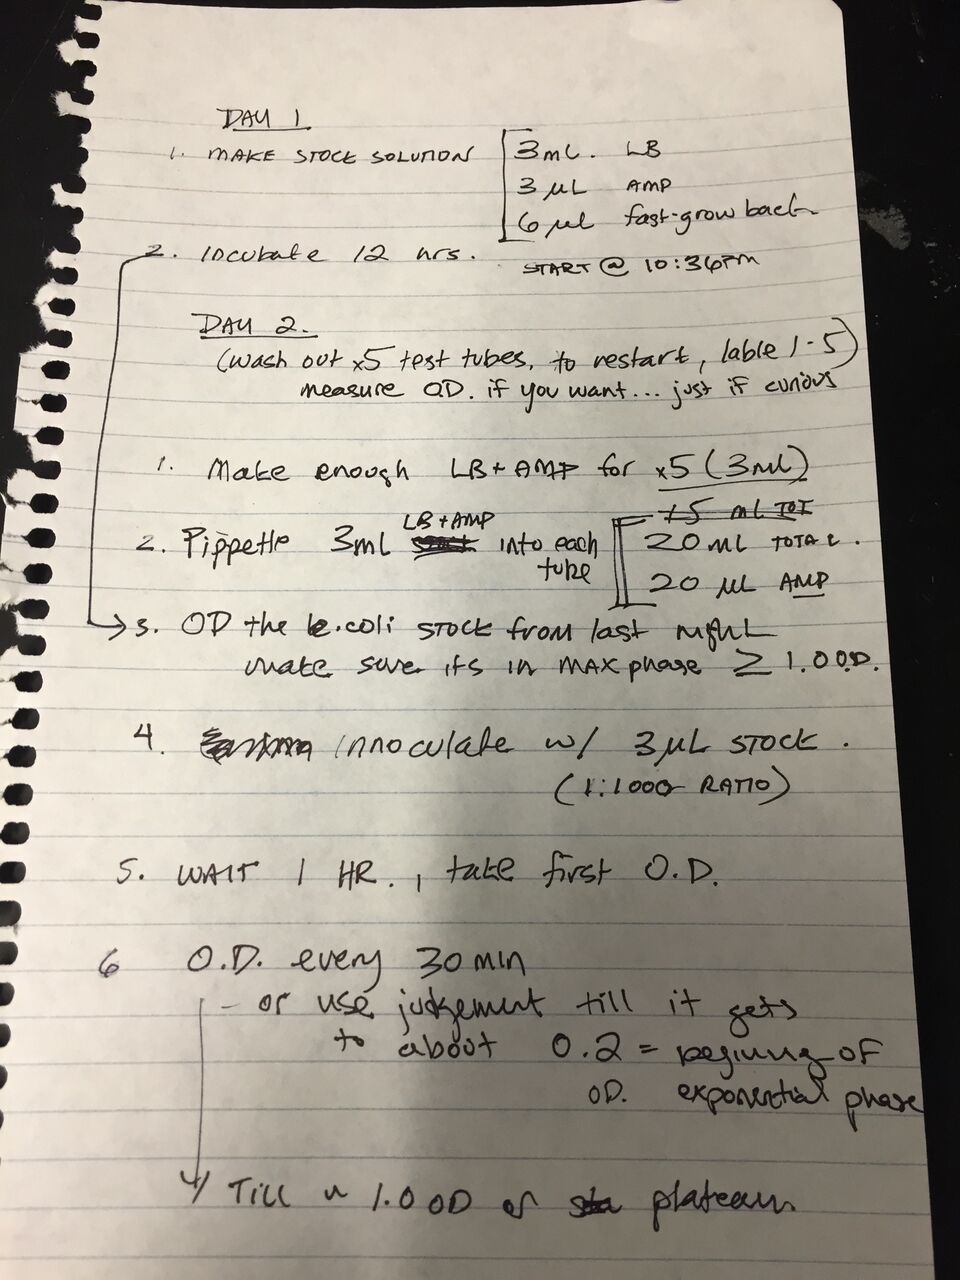 DAY 1
1. MAKE STOCK SOLUTION
3mL. LB
3 μL AMP
6 μL fast-grow back
2. Incubate 12 hrs.
START @ 10:36PM
DAY 2.
(wash out x5 test tubes, to restart, lable 1-5)
measure OD. if you want... just if curious
1. Make enough LB + AMP for x5 (3mL)
15 mL TOT
2. Pippette 3ml LB + AMP into each tube
20 mL TOTAL.
20 μL AMP
3. OD the e.coli STOCK from last night
make sure its in MAX phase ≥ 1.0 O.D.
4. innoculate w/ 3μL STOCK.
(1:1000 RATIO)
5. WAIT 1 HR., take first O.D.
6 O.D. every 30 min
- or use judgement till it gets
to about 0.2 = beginng of
OD. exponential phase
Till ~ 1.0 OD or plateau